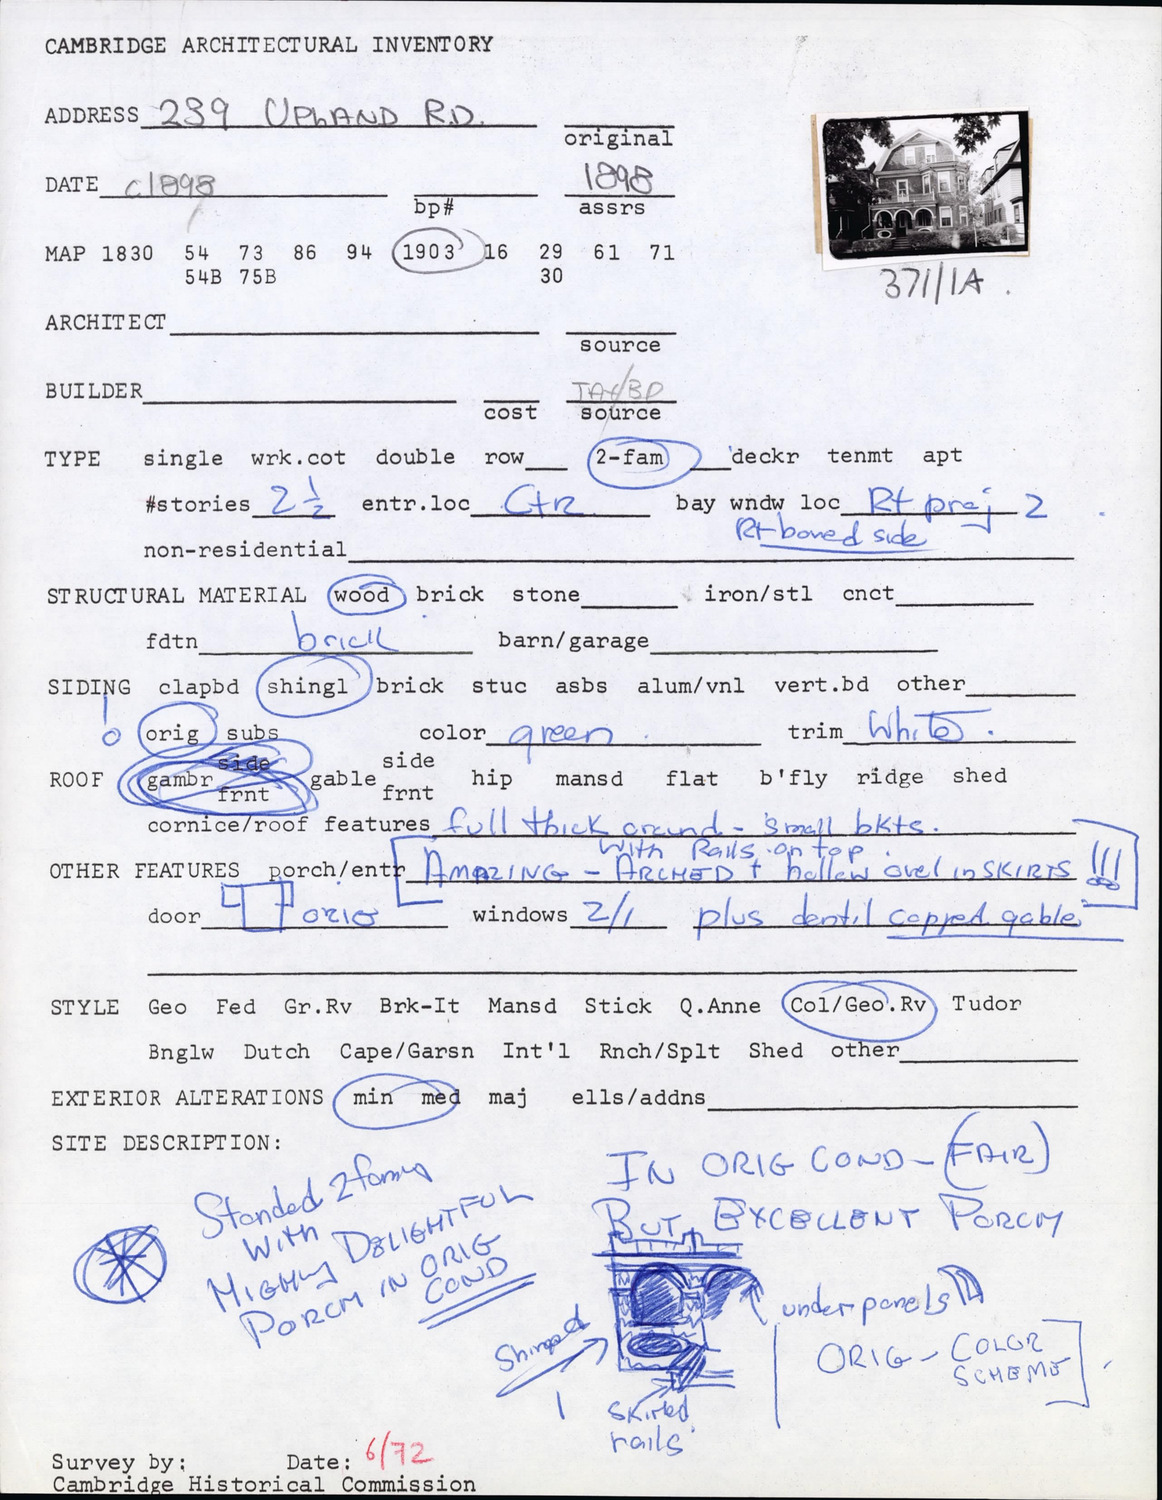 CAMBRIDGE ARCHITECTURAL INVENTORY
ADDRESS 239 UPLAND RD.
original
DATE c1898 1898
bp# assrs
MAP 1830 54 73 86 94 1903 16 29 61 71
54B 75B 30
371/1A.
ARCHITECT
source
BUILDER TAX/BP
cost source
TYPE single wrk.cot double row 2-fam deckr tenmt apt
#stories 2 1/2 entr.loc Ctr bay wndw loc Rt proj 2
Rt bowed side
non-residential
STRUCTURAL MATERIAL wood brick stone iron/stl cnct
fdtn brick barn/garage
SIDING clapbd shingl brick stuc asbs alum/vnl vert.bd other
! orig subs color green trim White.
side side
ROOF gambr gable hip mansd flat b'fly ridge shed
frnt frnt
cornice/roof features full thick around - small bkts.
With Rails on top.
OTHER FEATURES porch/entr AMAZING - ARCHED + hollow ovel in SKIRTS !!!
door ORIG windows 2/1 plus dentil capped gable
STYLE Geo Fed Gr.Rv Brk-It Mansd Stick Q.Anne Col/Geo.Rv Tudor
Bnglw Dutch Cape/Garsn Int'l Rnch/Splt Shed other
EXTERIOR ALTERATIONS min med maj ells/addns
SITE DESCRIPTION:
Standed 2 fam
With
MIGHTY DELIGHTFUL
PORCH IN ORIG
COND
IN ORIG COND - (FAIR)
BUT, EXCELLENT PORCH
underpanels
Shingled
ORIG - COLOR
SCHEME
skirted
rails
Survey by: Date: 6/72
Cambridge Historical Commission